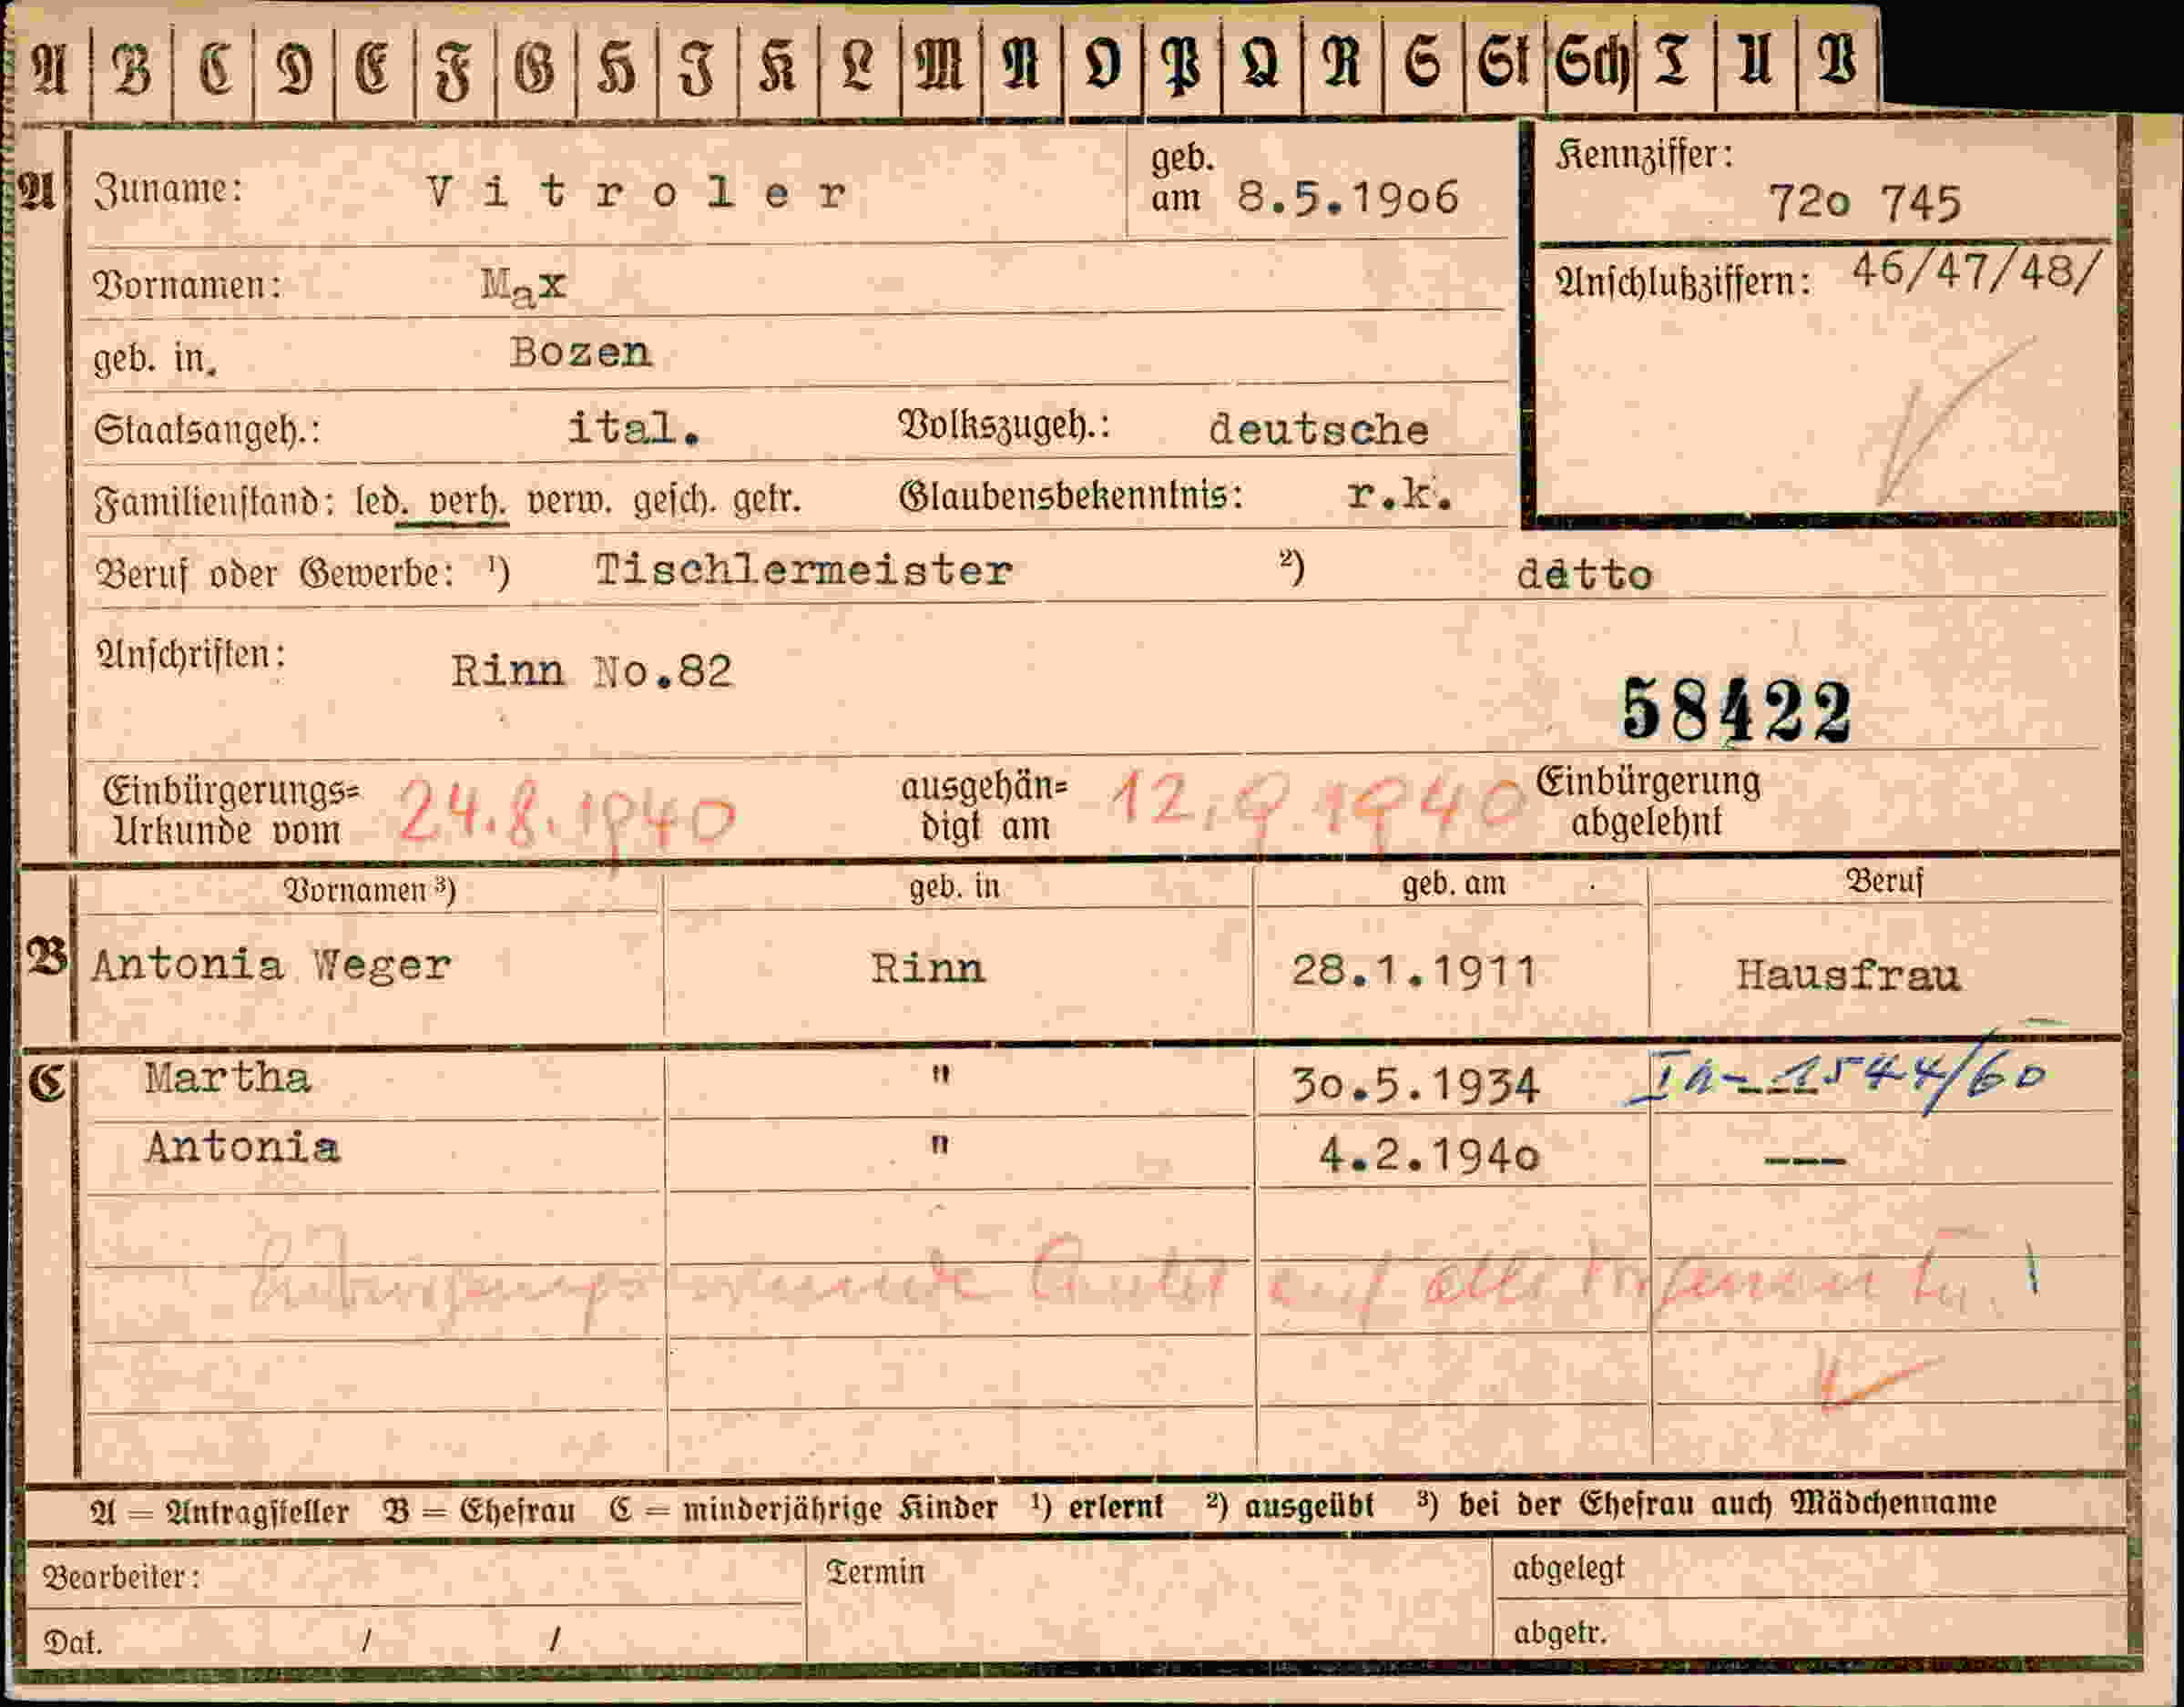 A B C D E F G H I K L M N O P Q R S St Sch T U V
A Zuname: Vitroler geb. am 8.5.19o6 Kennziffer: 72o 745
Vornamen: Max Anschlußziffern: 46/47/48/
geb. in. Bozen
Staatsangeh.: ital. Volkszugeh.: deutsche
Familienstand: led. verh. verw. gesch. getr. Glaubensbekenntnis: r.k.
Beruf oder Gewerbe: ¹) Tischlermeister ²) detto
Anschriften: Rinn No.82
58422
Einbürgerungs=
Urkunde vom 24.8.1940 ausgehän=
digt am 12.9.1940 Einbürgerung
abgelehnt
Vornamen ³) geb. in geb. am Beruf
B Antonia Weger Rinn 28.1.1911 Hausfrau
C Martha " 3o.5.1934 Ia-1544/60
Antonia " 4.2.194o ---
auf alle
A = Antragsteller B = Ehefrau C = minderjährige Kinder ¹) erlernt ²) ausgeübt ³) bei der Ehefrau auch Mädchenname
Bearbeiter: Termin abgelegt
Dat. / / abgetr.